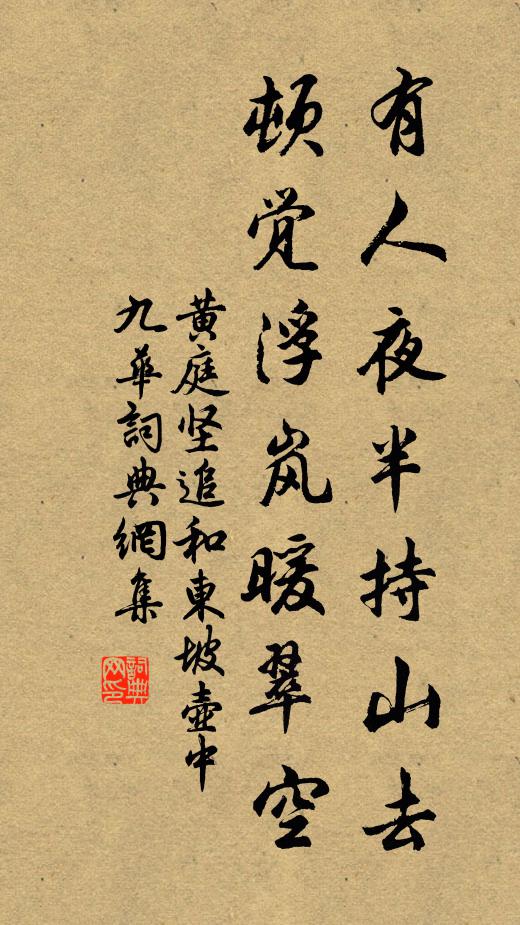 有人夜半持山去
顿觉浮岚暖翠空
黄庭坚追和東坡壶中
九華詞典網集
詞典
网印